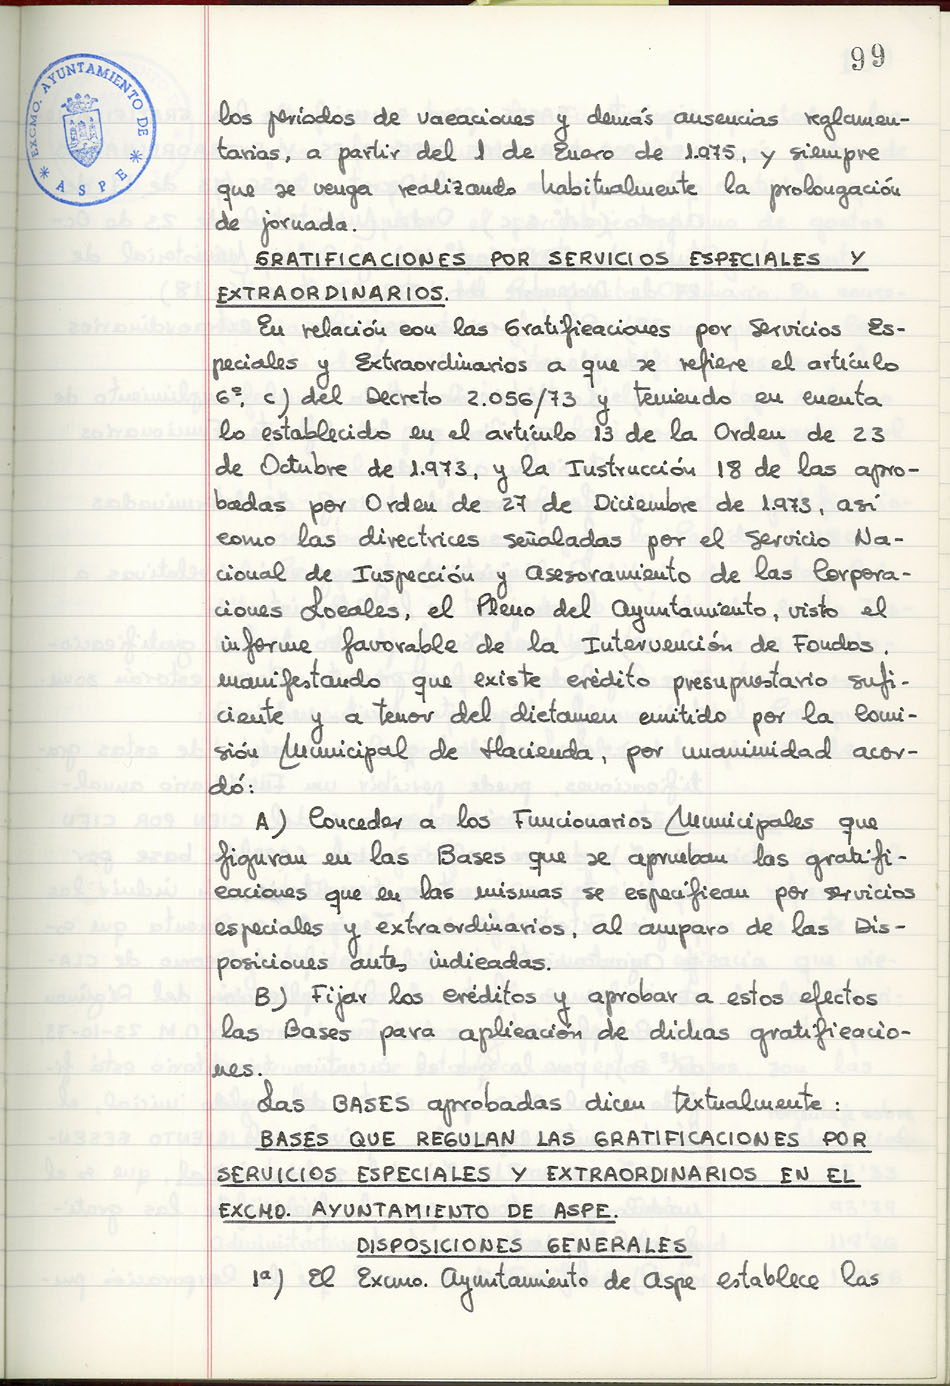 99
EXCMO. AYUNTAMIENTO DE
* ASPE *
los períodos de vacaciones y demás ausencias reglamen-
tarias, a partir del 1 de Enero de 1.975, y siempre
que se venga realizando habitualmente la prolongación
de jornada.
GRATIFICACIONES POR SERVICIOS ESPECIALES Y
EXTRAORDINARIOS.
En relación con las Gratificaciones por Servicios Es-
peciales y Extraordinarios a que se refiere el artículo
6º, c) del Decreto 2.056/73 y teniendo en cuenta
lo establecido en el artículo 13 de la Orden de 23
de Octubre de 1.973, y la Instrucción 18 de las apro-
badas por Orden de 27 de Diciembre de 1.973, así
como las directrices señaladas por el Servicio Na-
cional de Inspección y Asesoramiento de las Corpora-
ciones Locales, el Pleno del Ayuntamiento, visto el
informe favorable de la Intervención de Fondos,
manifestando que existe crédito presupuestario sufi-
ciente y a tenor del dictamen emitido por la Comi-
sión Municipal de Hacienda, por unanimidad acor-
dó:
A) Conceder a los Funcionarios Municipales que
figuran en las Bases que se aprueban las gratifi-
caciones que en las mismas se especifican por servicios
especiales y extraordinarios, al amparo de las Dis-
posiciones antes indicadas.
B) Fijar los créditos y aprobar a estos efectos
las Bases para aplicación de dichas gratificacio-
nes.
Las BASES aprobadas dicen textualmente:
BASES QUE REGULAN LAS GRATIFICACIONES POR
SERVICIOS ESPECIALES Y EXTRAORDINARIOS EN EL
EXCMO. AYUNTAMIENTO DE ASPE.
DISPOSICIONES GENERALES
1ª) El Excmo. Ayuntamiento de Aspe establece las